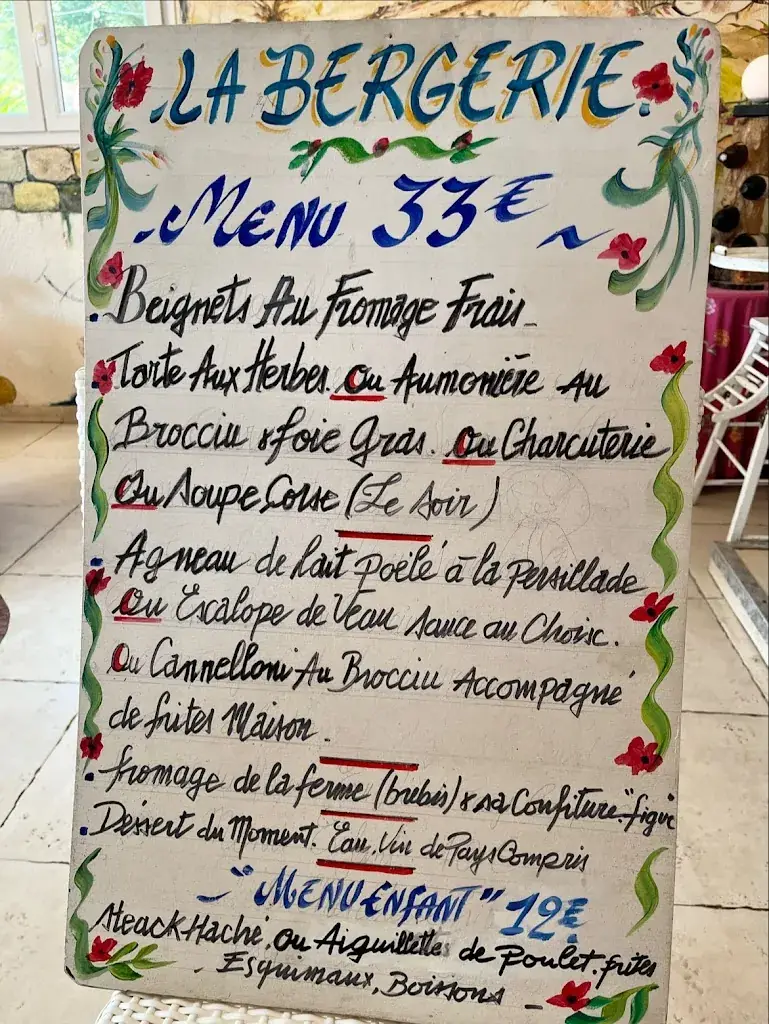 LA BERGERIE.
MENU 33€
Beignets Au Fromage Frais
Tarte Aux Herbes. Ou Aumonière Au
Brocciu & foie Gras. Ou Charcuterie
Ou Soupe Corse (Le Soir)
Agneau de lait poëlé à la persillade
Ou Escalope de Veau sauce au Choix.
Ou Cannelloni Au Brocciu Accompagné
de frites Maison.
fromage de la ferme (brebis) & sa Confiture "figue
Déssert du Moment. Eau. Vin de Pays Compris
"MENU ENFANT" 12€
Steack Haché, ou Aiguillettes de Poulet. frites
Esquimaux, Boissons